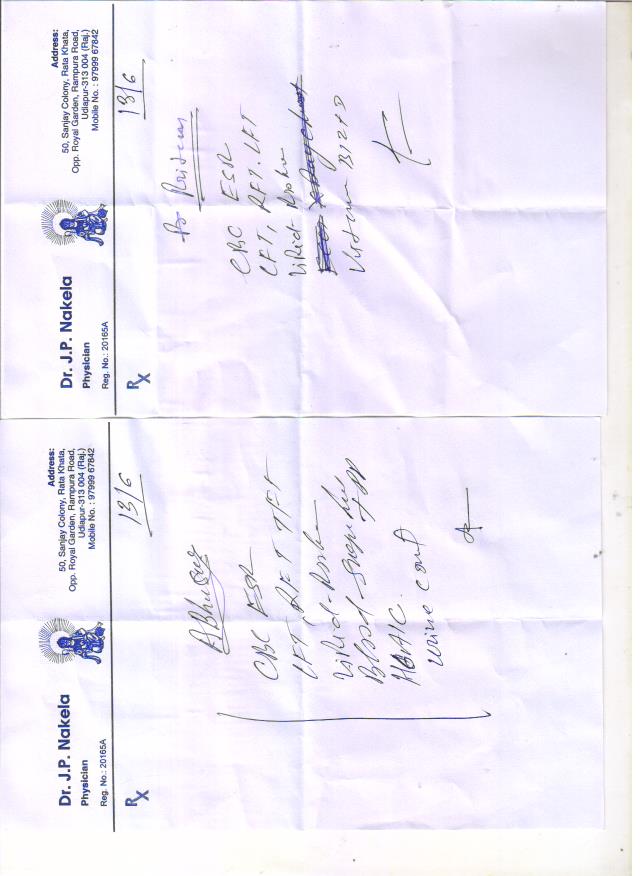 Dr. J.P. Nakela
Physician
Reg. No.: 20165A
Address:
50, Sanjay Colony, Rata Khata,
Opp. Royal Garden, Rampura Road,
Udiapur-313 004 (Raj.)
Mobile No. : 97999 67842
Rx
13/6
CBC ESR
LFT, RFT. LFT
Vitamin B12 + D
Dr. J.P. Nakela
Physician
Reg. No.: 20165A
Address:
50, Sanjay Colony, Rata Khata,
Opp. Royal Garden, Rampura Road,
Udiapur-313 004 (Raj.)
Mobile No. : 97999 67842
Rx
13/6
CBC ESR
LFT RFT TFT
Blood
HbA1C
Urine